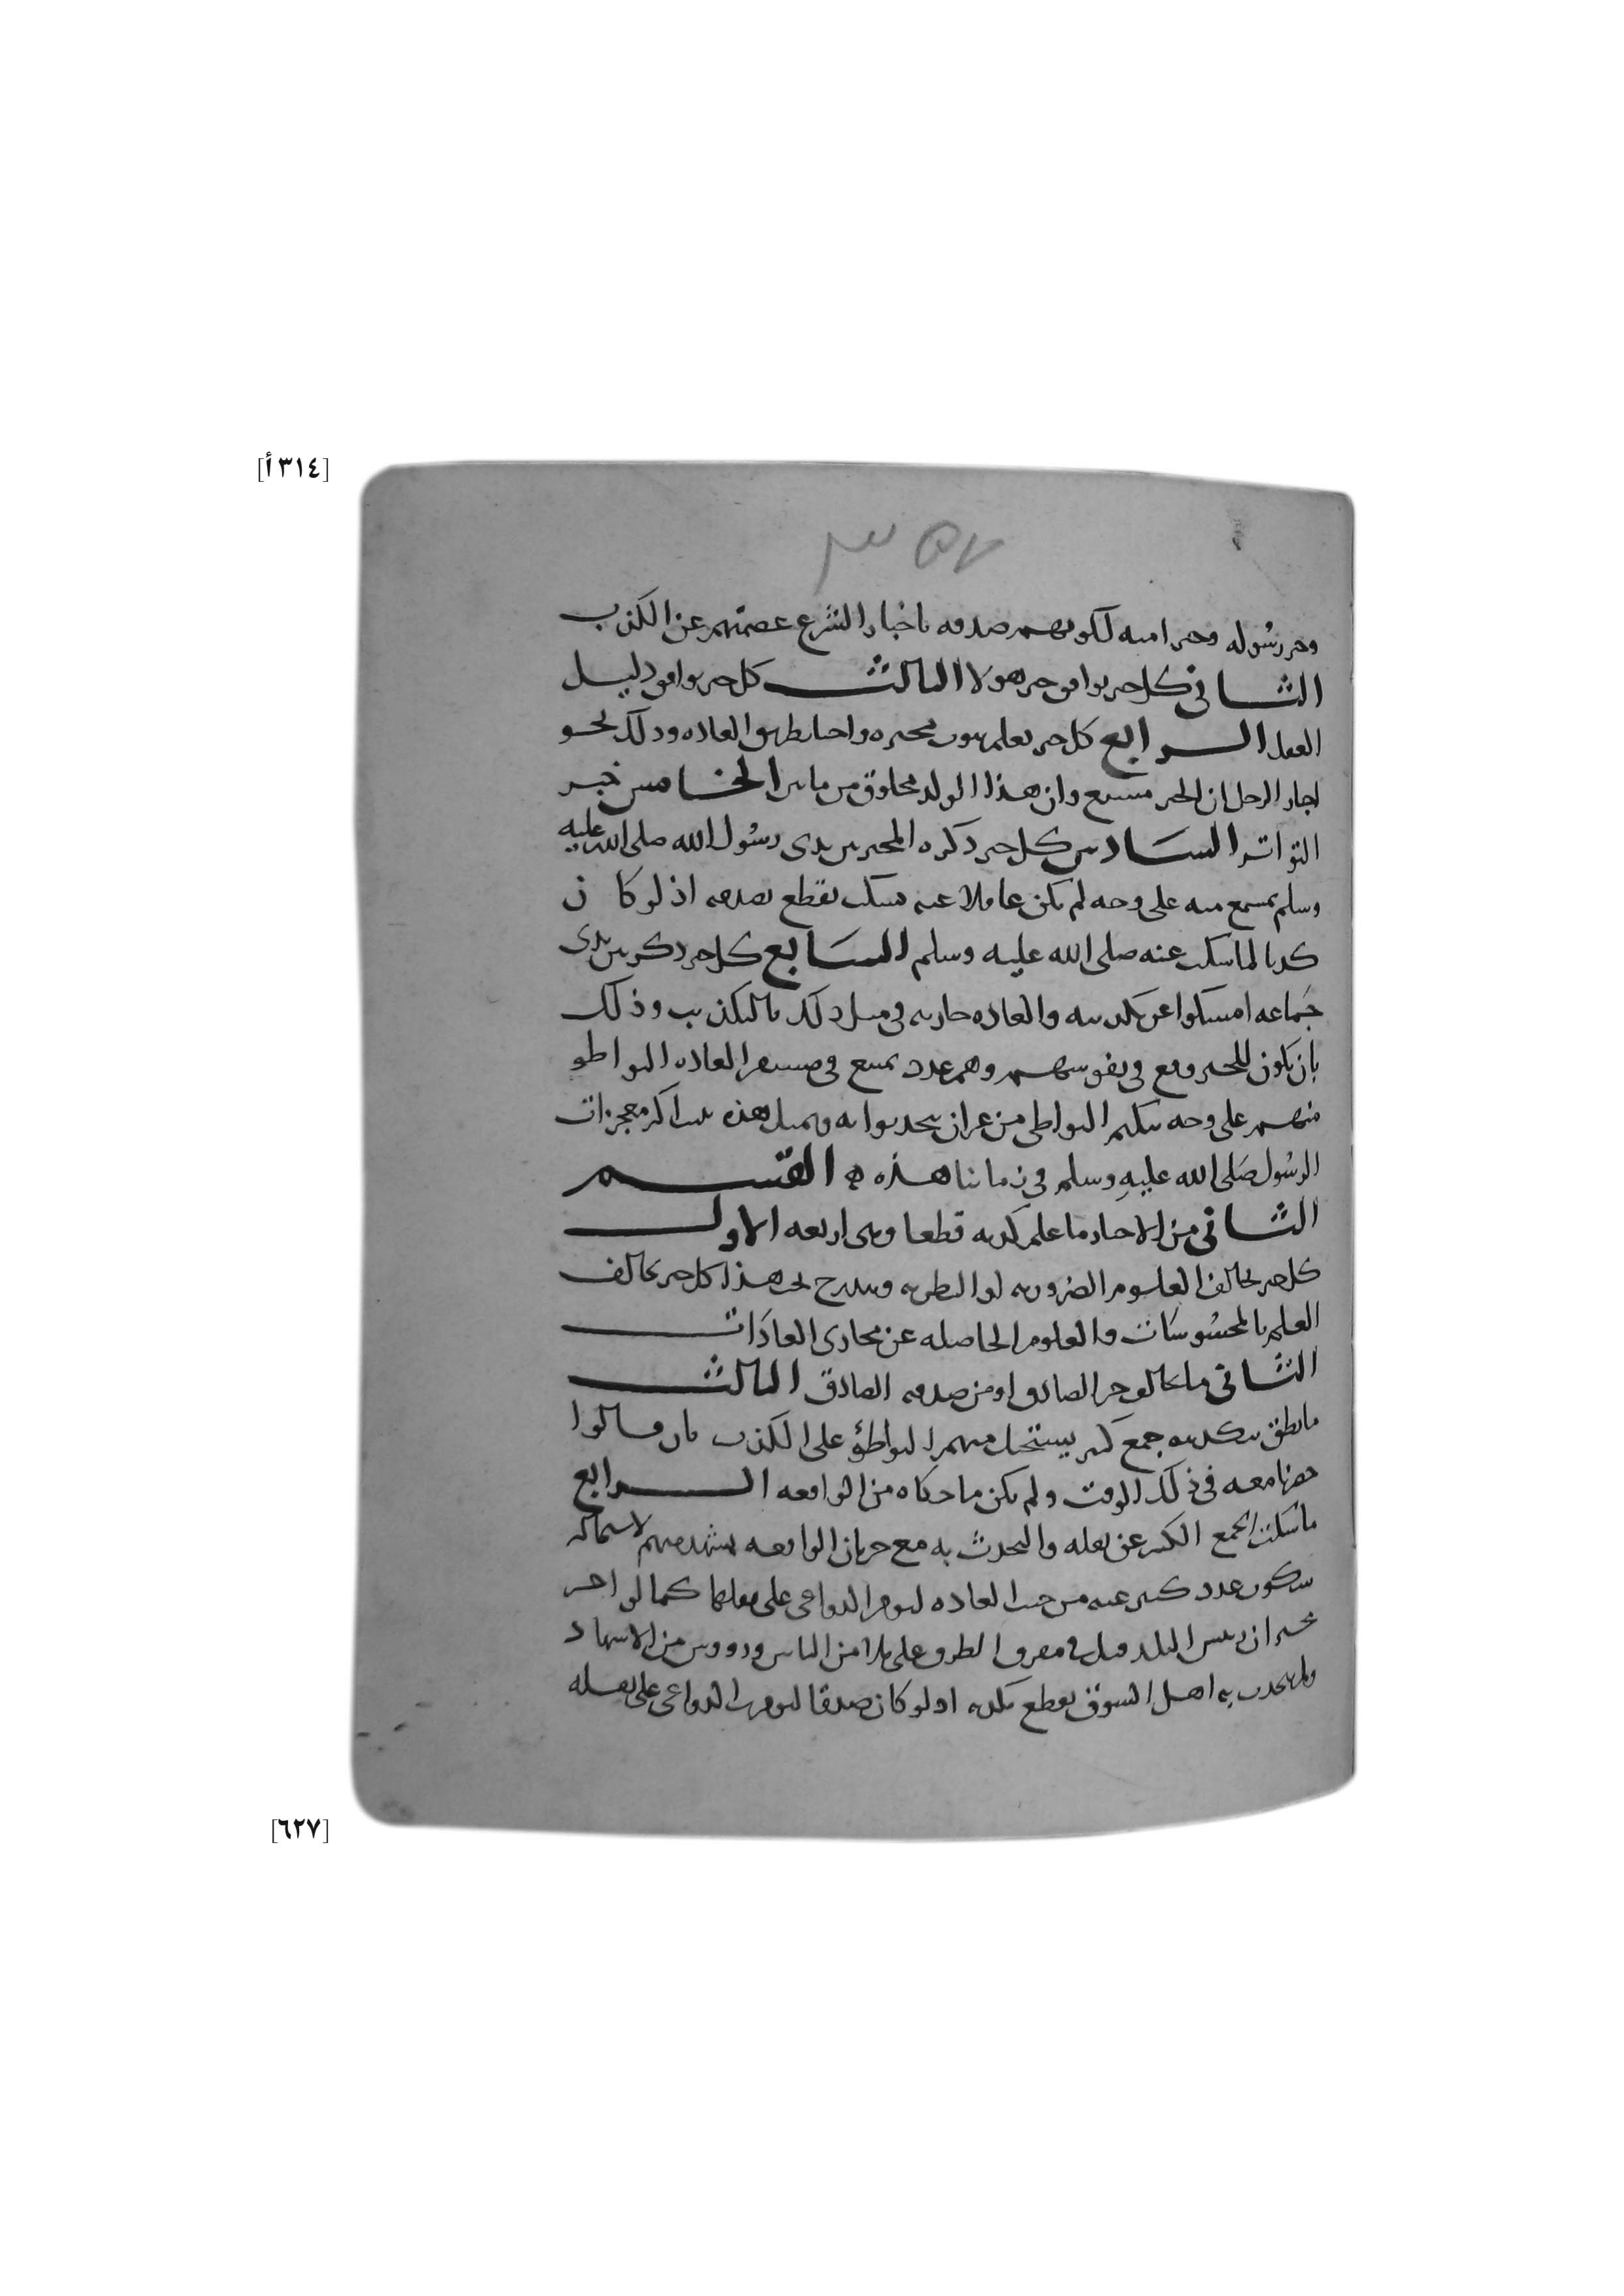 [٣١٤أ]
٣٥٧
وخبر رسوله وخبر امته لكونهم صدقه باخبار الشرع عصمتهم عن الكذب
الثاني كل خبر يوافق خبر هولا الثالث كل خبر يوافق دليل
العقل الرابع كل خبر يعلم مخبره العاده وذلك نحو
اخبار الرجل ان الخبر وان هذا الولد مخلوق من ماين الخامس خبر
التواتر السادس كل خبر ذكره المخبر بين يدي رسول الله صلى الله عليه
وسلم بمسمع منه على وجه لم يكن غافلا عنه فسكت يقطع بصدقه اذ لو كان
كذبا لما سكت عنه صلى الله عليه وسلم السابع كل خبر ذكر بين يدي
جماعه امسكوا عن تكذيبه والعاده جاريه في مثل ذلك بالتكذيب وذلك
بان يكون للخبر وقع في نفوسهم وهم عدد يمتنع في مستقر العاده التواطو
منهم على وجه ينكتم التواطي من غير ان يتحدثوا به وبمثل هذه يثبت اكثر معجزات
الرسول صلى الله عليه وسلم في زماننا هذه ه القسم
الثاني من الاحاد ما علم كذبه قطعا وهى اربعه الاول
كل خبر يخالف العلوم الضروريه او النظريه ويندرج تحت هذا كل خبر يخالف
العلم بالمحسوسات والعلوم الحاصله عن مجارى العادات
الثاني ما يخالف خبر الصادق او من صدقه الصادق الثالث
ما نطق بتكذيبه جمع كثير يستحيل منهم التواطؤ على الكذب بان قالوا
حضرنا معه في ذلك الوقت ولم يكن ما حكاه من الواقعه الرابع
ما سكت الجمع الكثير عن نقله والتحدث به مع جريان الواقعه بمشهد منهم لاستحاله
سكوت عدد كثير عنه من حيث العاده لتوفر الدواعي على نقلها كما لو اخبر
مخبر ان رئيس البلد قتل في مفرق الطرق على ملا من الناس ورووس من الاشهاد
ولم يتحدث به اهل السوق يقطع بكذبه اذ لو كان صدقا لتوفرت الدواعي على نقله
[٦٢٧]